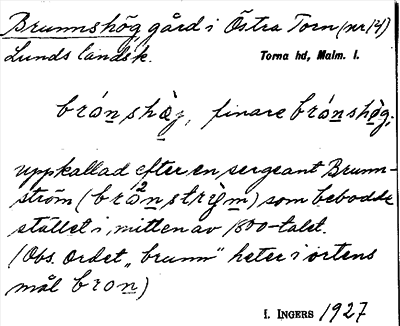 Brunnshög, gård i Östra Torn (nr 14)
Lunds landsk. Torna hd, Malm. l.
brónshàj, finare brónshø̀g,
uppkallad efter en sergeant Brunn-
ström (brónstrỳm) som bebodde
stället i mitten av 1800-talet.
(Obs. ordet „brunn" heter i ortens
mål bron)
I. INGERS 1927